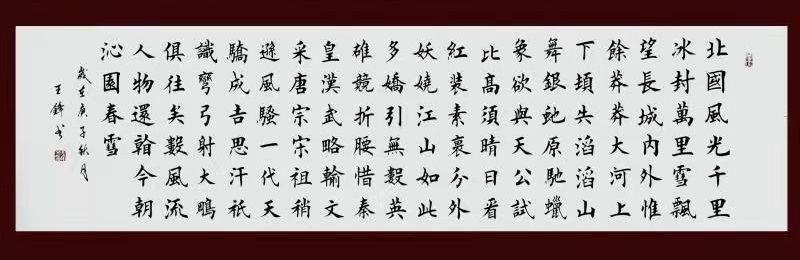 北國風光千里
冰封萬里雪飄
望長城內外惟
餘莽莽大河上
下頓失滔滔山
舞銀蛇原馳蠟
象欲與天公試
比高須晴日看
紅裝素裹分外
妖嬈江山如此
多嬌引無數英
雄競折腰惜秦
皇漢武略輸文
采唐宗宋祖稍
遜風騷一代天
驕成吉思汗祇
識彎弓射大鵰
俱往矣數風流
人物還看今朝
沁園春雪
歲在庚子秋月
王鋒書